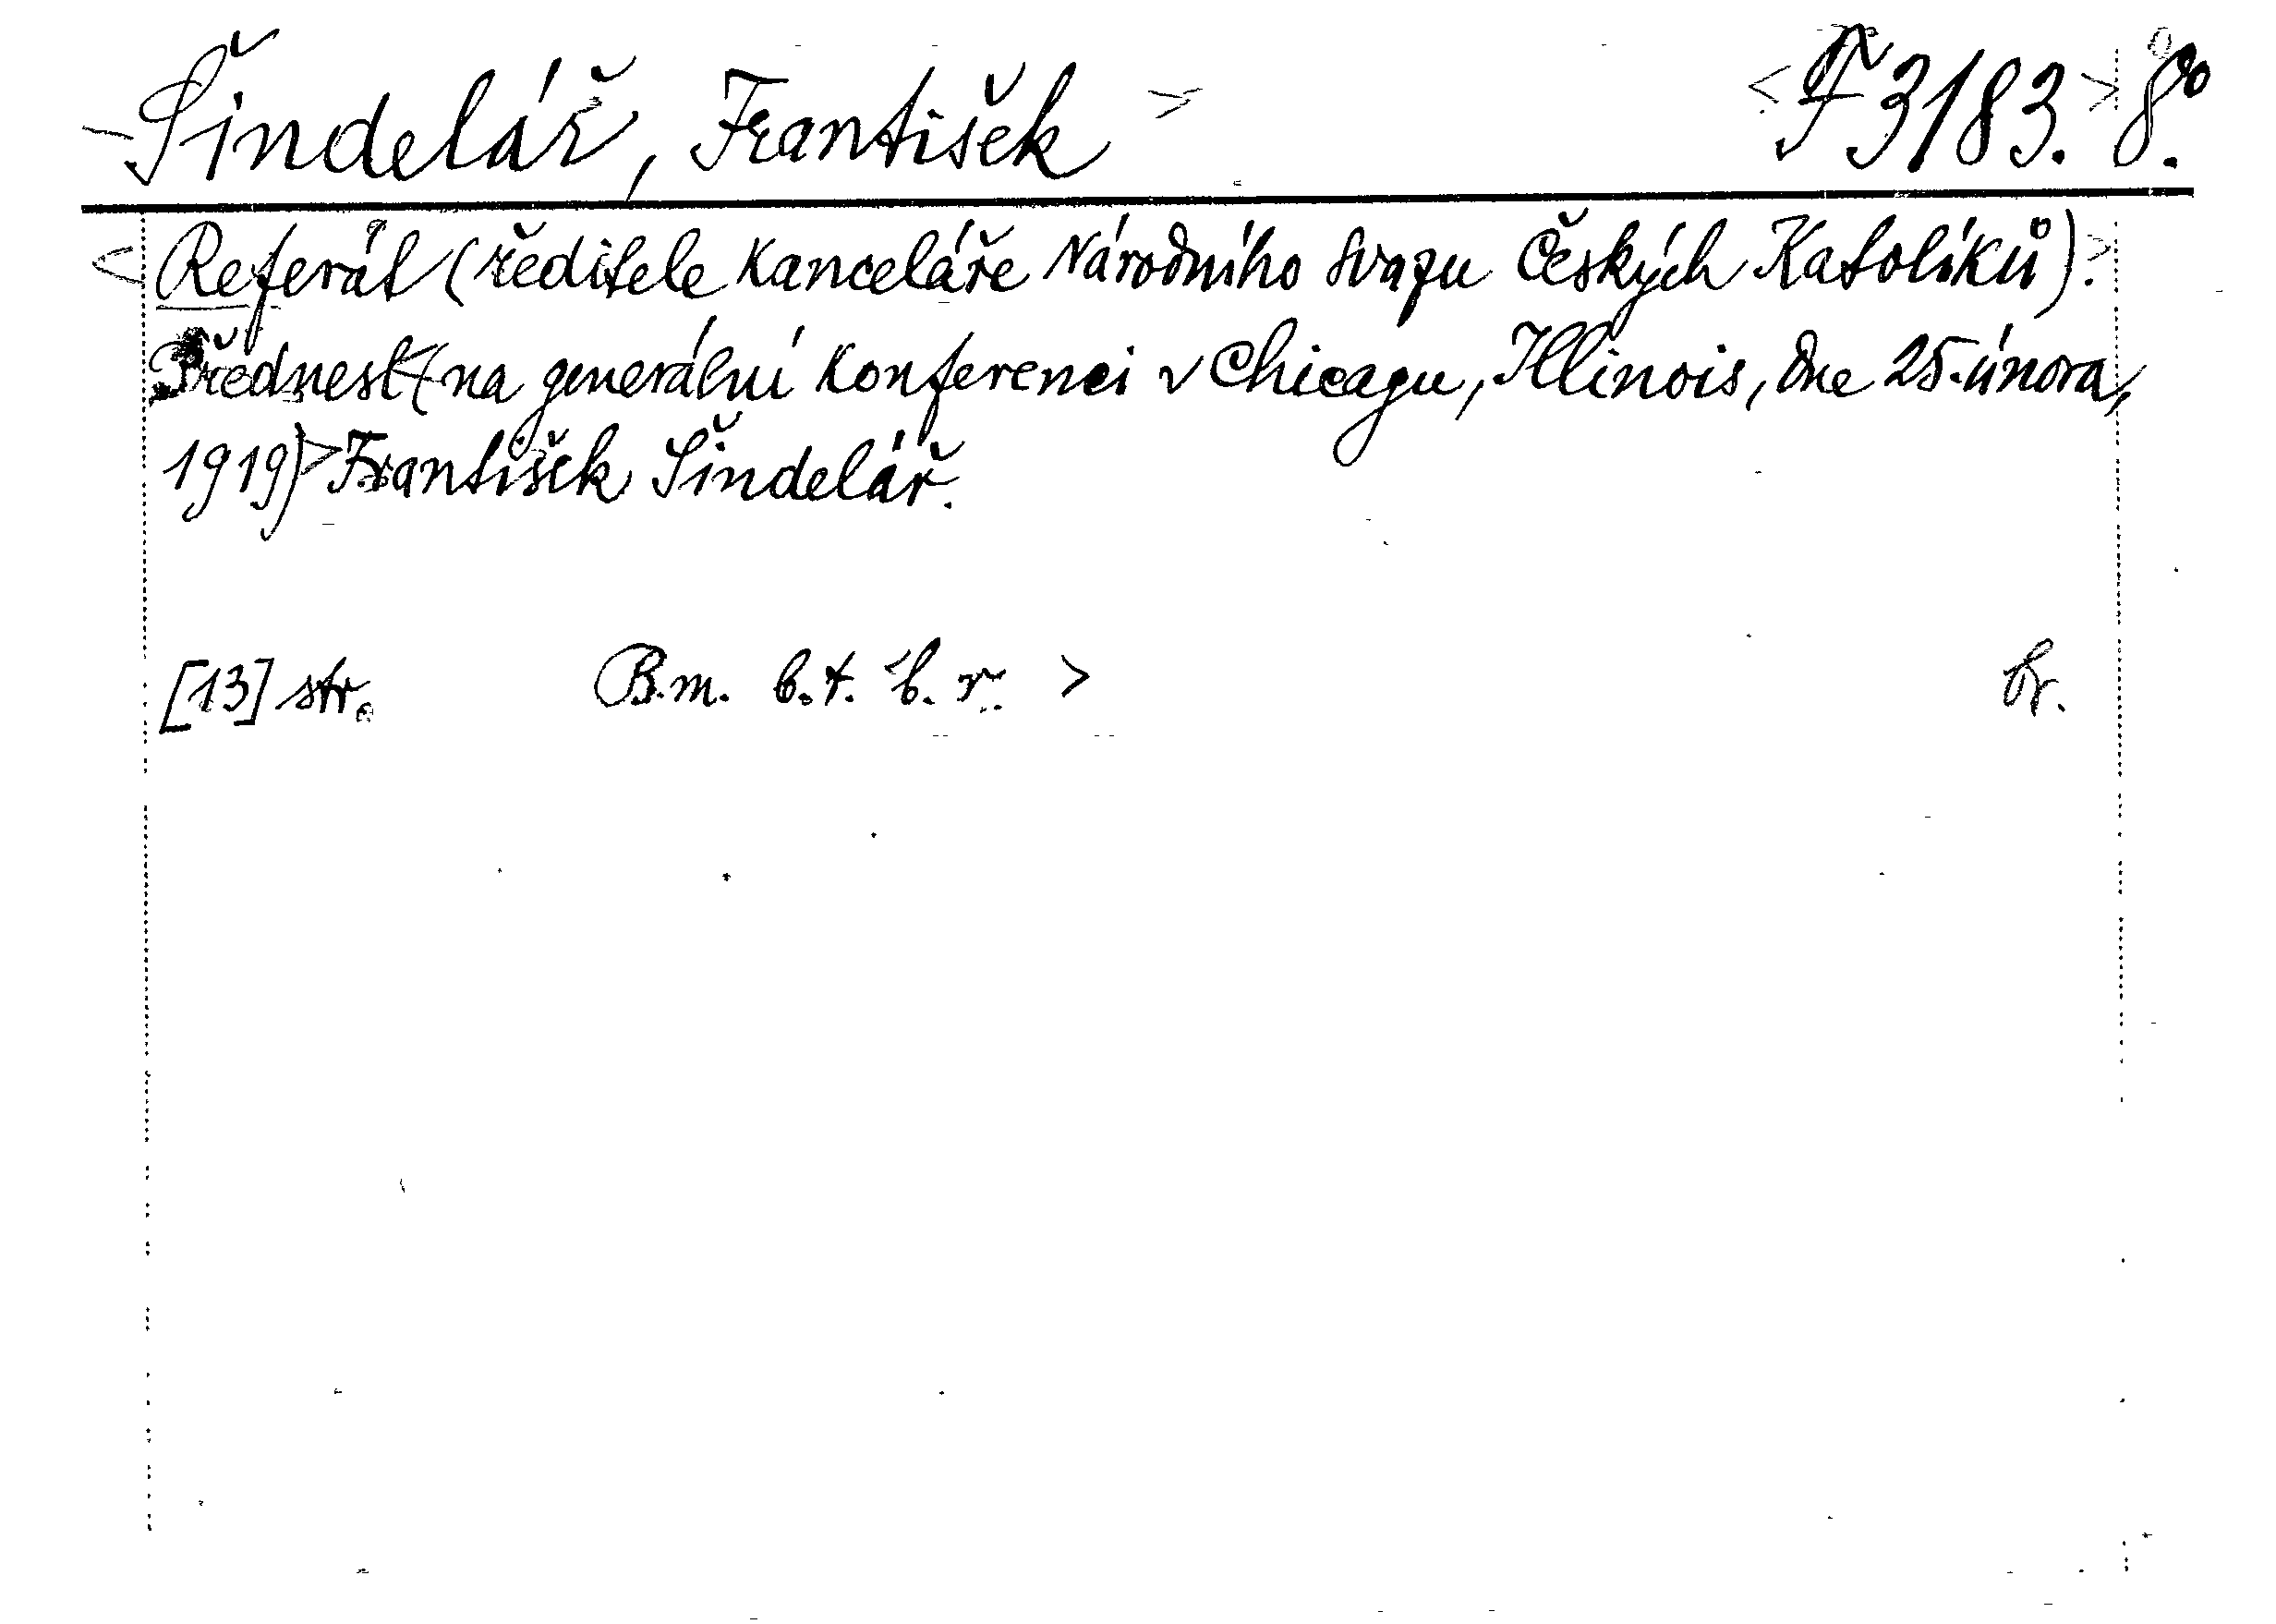 Šindelář, František > <F 3183.> 8°.
<Referát (ředitele kanceláře Národního svazu Českých Katolíků).>
Přednesl <(na generální konferenci v Chicagu, Illinois, dne 25. února,
1919)> František Šindelář.
[13] str. B.m. b.t. b.r. > br.